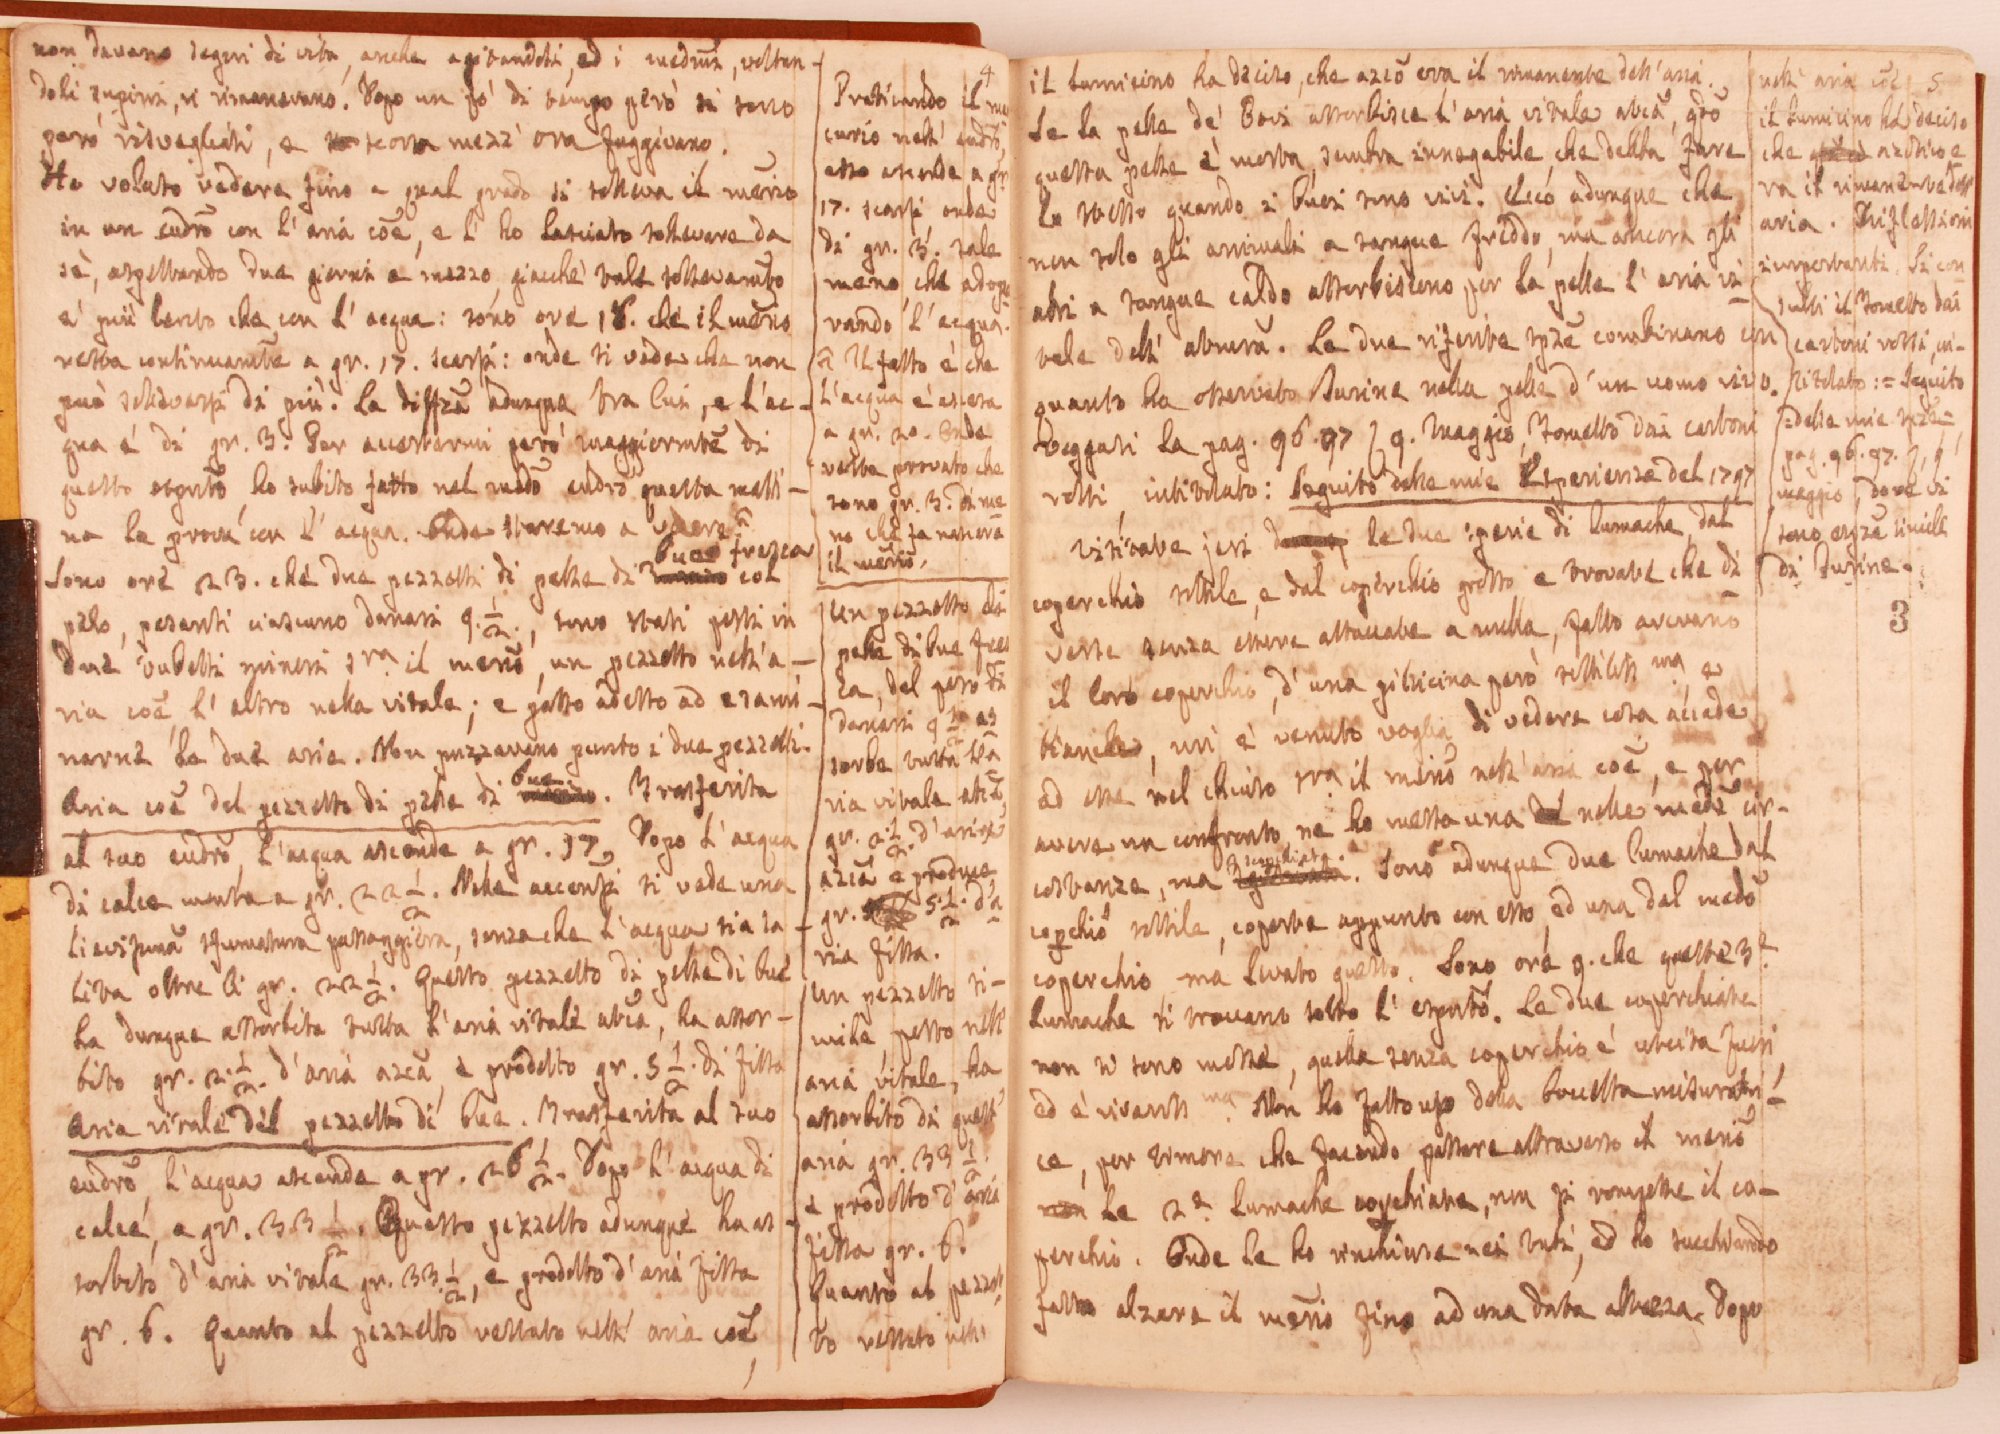 non davano segni di vita, anche agitandosi, ed i medmi, voltan-
doli supini, vi rimanevano. Dopo un pò di tempo però si sono
però risvegliati, e scorsa mezz' ora fuggivano.
Ho voluto vedere fino a qual grado si solleva il merio
in un eudro con l' aria coe, e l' ho lasciato sollevare da
sè, aspettando due giorni e mezzo, giacchè tale sollevamto
è più lento che con l' acqua: sono ore 18. che il merio
resta continuamte a gr. 17. scarsi: onde si vede che non
può sollevarsi di più. La diffza adunque tra lui, e l'ac-
qua è di gr. 3. Per accertarmi però maggiormte di
questo espto, ho subito fatto nel medo eudro questa matti-
na la prova con l' acqua. Onde staremo a vedere.
Sono ore 23. che due pezzetti di pelle di bue fresca col
pelo, pesanti ciascuno danari 9 1/2, sono stati posti in
due tubetti minori sra il merio, un pezzetto nell'a-
ria coe, l' altro nella vitale; e passo adesso ad esami-
narne le due arie. Non puzzavano punto i due pezzetti.
Aria coe del pezzetto di pelle di bue. Trasferita
al suo eudro, l'acqua ascende a gr. 17. Dopo l' acqua
di calce monta a gr. 22 1/2. Nelle accensi si vede una
lievissima sfumatura passaggiera, senza che l' acqua sia sa-
lita oltre li gr. 22 1/2. Questo pezzetto di pelle di bue
ha dunque assorbita tutta l' aria vitale atca, ha assor-
bito gr. 2 1/2. d' aria azca, e prodotto gr. 5 1/2. di fissa
Aria vitale del pezzetto di bue. Trasferita al suo
eudro, l'acqua ascende a gr. 26 1/2. Dopo l' acqua di
calce, a gr. 33 1/2. Questo pezzetto adunque ha as-
sorbito d' aria vitale gr. 33 1/2, e prodotto d' aria fissa
gr. 6. Quanto al pezzetto restato nell' aria coe,
4
Praticando il mer
curio nell' eudro,
esso ascende a gr
17. scarsi onde
di gr. 3. sale
meno, che adope
rando l' acqua.
Il fatto è che
l' acqua è ascesa
a gr. 20. Onde
resta provato che
sono gr. 3. di me
no che fa
il merio.
Un pezzetto di
pelle di bue fres
ca, del peso di
danari 9 1/2 as
sorbe tutta l'a
ria vitale atca,
gr. 2 1/2. d' aria
azca e produce
gr. 5 1/2. d'a
ria fissa.
Un pezzetto si-
mile posto nell'
aria vitale, ha
assorbito di quest'
aria gr. 33 1/2.
e prodotto d' aria
fissa gr. 6.
Quanto al pezzet
to restato nell'
il lumicino ha deciso, che azco era il rimanente dell' aria.
Se la pelle de' Bovi assorbisce l' aria vitale atca, qdo
questa pelle è morta, sembra innegabile che debba fare
lo stesso quando i buoi sono vivi. Ecco adunque che
non solo gli animali a sangue freddo, ma ancora gli
altri a sangue caldo assorbiscono per la pelle l' aria vi-
tale dell' atmra. Le due riferite spze combinano con
quanto ha osservato Jurine nella pelle d' un uomo vivo.
Veggasi la pag. 96. 97 9. Maggio, Tometto dai cartoni
rossi, intitolato: Seguito delle mie Esperienze del 1797
Visitate jeri le due specie di lumache, dal
coperchio sottile, e dal coperchio grosso e trovate che di
verse senza essere attaccate a nulla, fatto avevano
il loro coperchio, d' una pellicina però sottiliss ma e
bianca, mi è venuto voglia di vedere cosa accade
ad esse nel chiuso sra il merio nell' aria coe, e per
avere un confronto, ne ho messa una nelle mede cir-
costanze, ma scoperchiata. Sono adunque due lumache dal
coperchio sottile, coperte appunto con esso, ed una dal medo
coperchio ma levato questo. Sono ore 9. che queste 3 e
lumache si trovano sotto l' espto. Le due coperchiate
non si sono mosse, quella senza coperchio è uscita fuori,
ed è vivaciss ma. Non ho fatto uso della boccetta misuratri-
ce, per timore che facendo passare attraverso il merio
le 2 e lumache copchiate, non si rompesse il co-
perchio. Onde le ho rinchiuse nei tubi, ed ho succhiando
fatto alzare il merio fino ad una data altezza. Dopo
nell' aria coe 5
il lumicino ha deciso
che azotico e
ra il rimanente dell'
aria. Riflessioni
importanti. Si con
sulti il Tometto dai
cartoni rossi, in-
titolato := Seguito
delle mie spze =
pag. 96. 97. 9.
maggio, dove vi
sono espze simili
di Jurine.
3